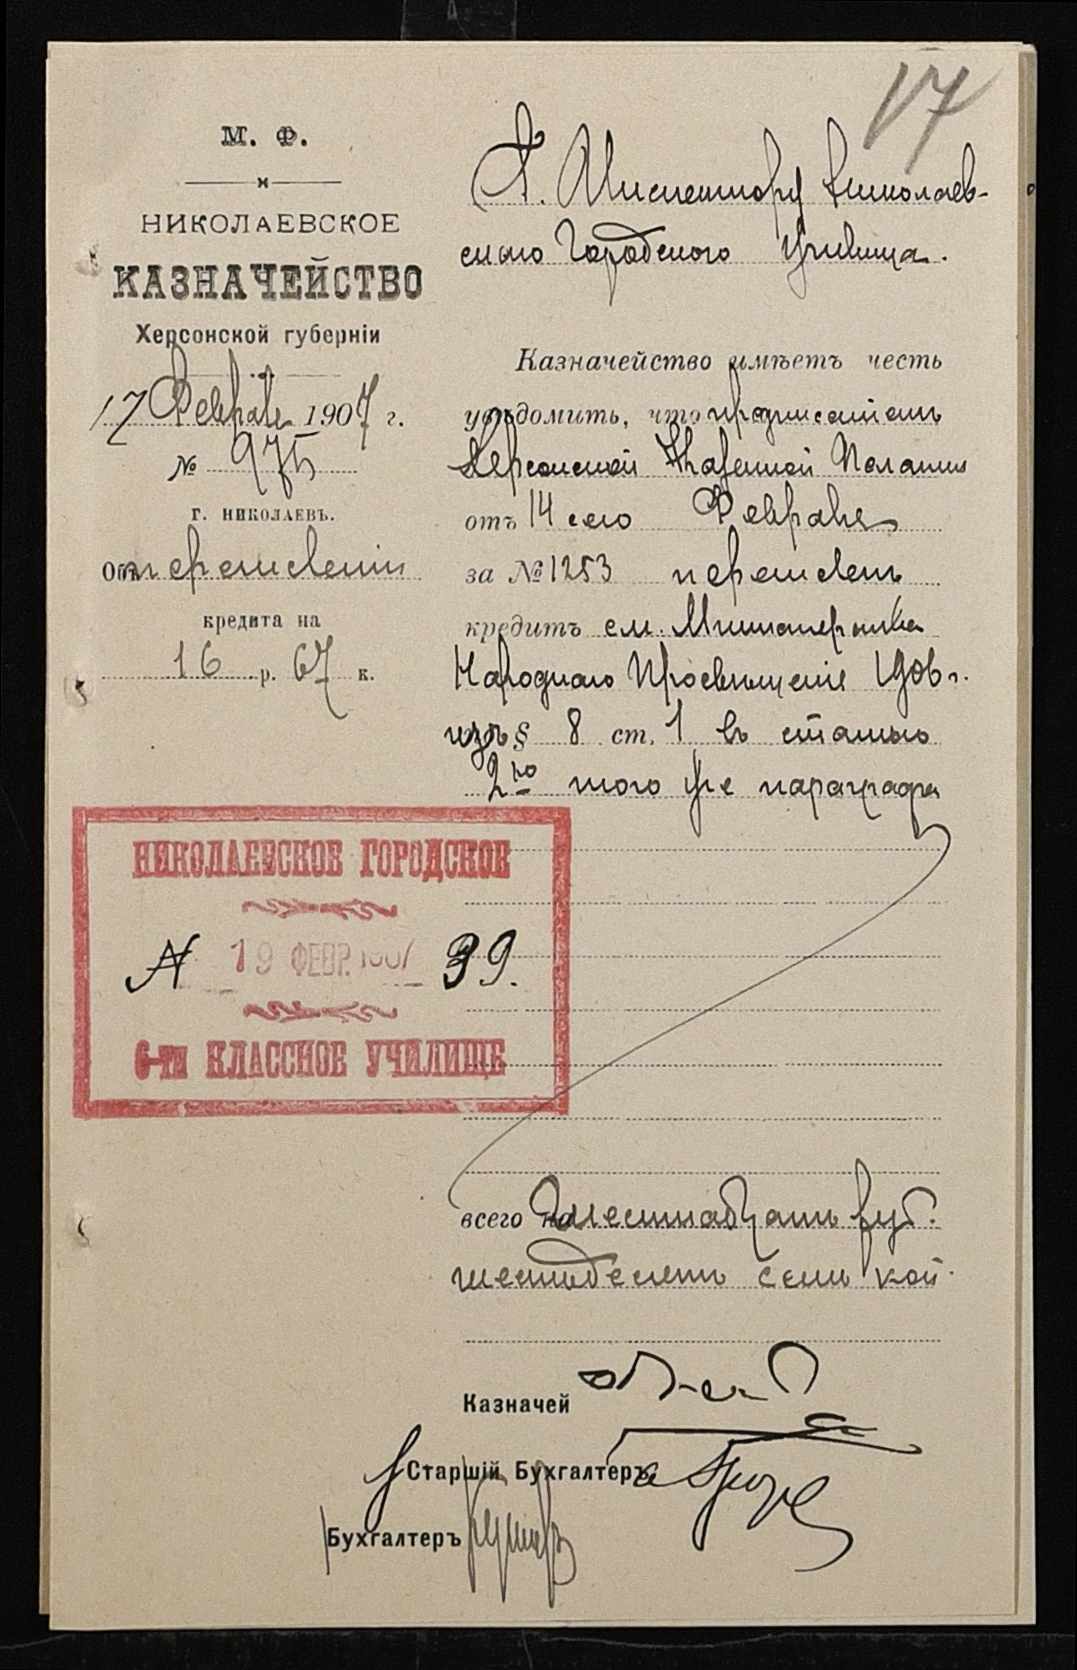 17
М. Ф.
НИКОЛАЕВСКОЕ
КАЗНАЧЕЙСТВО
Херсонской губерніи
17 Февраля 1907 г.
№ 975
г. НИКОЛАЕВЪ.
Объ перечисленіи
кредита на
16 р. 67 к.
Г. Инспектору Николаев-
скаго Городского Училища.
Казначейство имѣетъ честь
увѣдомить, что предписаніемъ
Херсонской Казенной Палаты
отъ 14 сего Февраля
за № 1253 перечисленъ
кредитъ см. Министерства
Народнаго Просвѣщенія 1906 г.
изъ § 8 ст. 1 въ статью
2ю того же параграфа
НИКОЛАЕВСКОЕ ГОРОДСКОЕ
N 19 ФЕВР. 1907 39.
6-ти КЛАССНОЕ УЧИЛИЩЕ
всего на шестнадцать руб.
шестьдесятъ семь коп.
Казначей
Старшій Бухгалтеръ
Бухгалтеръ